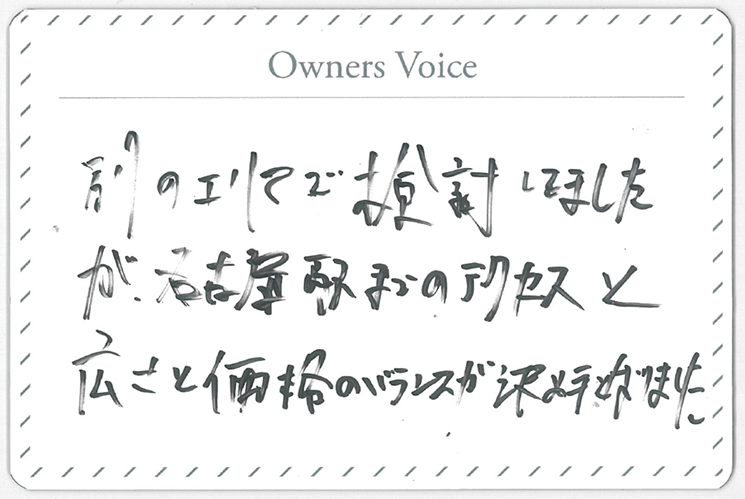 Owners Voice
別のエリアで検討してました
が、名古屋駅までのアクセスと
広さと価格のバランスが決め手となりました。